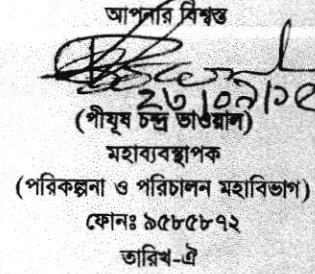 আপনার বিশ্বস্ত
(পীযূষ চন্দ্র ভাওয়াল)
মহাব্যবস্থাপক
(পরিকল্পনা ও পরিচালন মহাবিভাগ)
ফোনঃ ৯৫৮৫৮৭২
তারিখ-ঐ